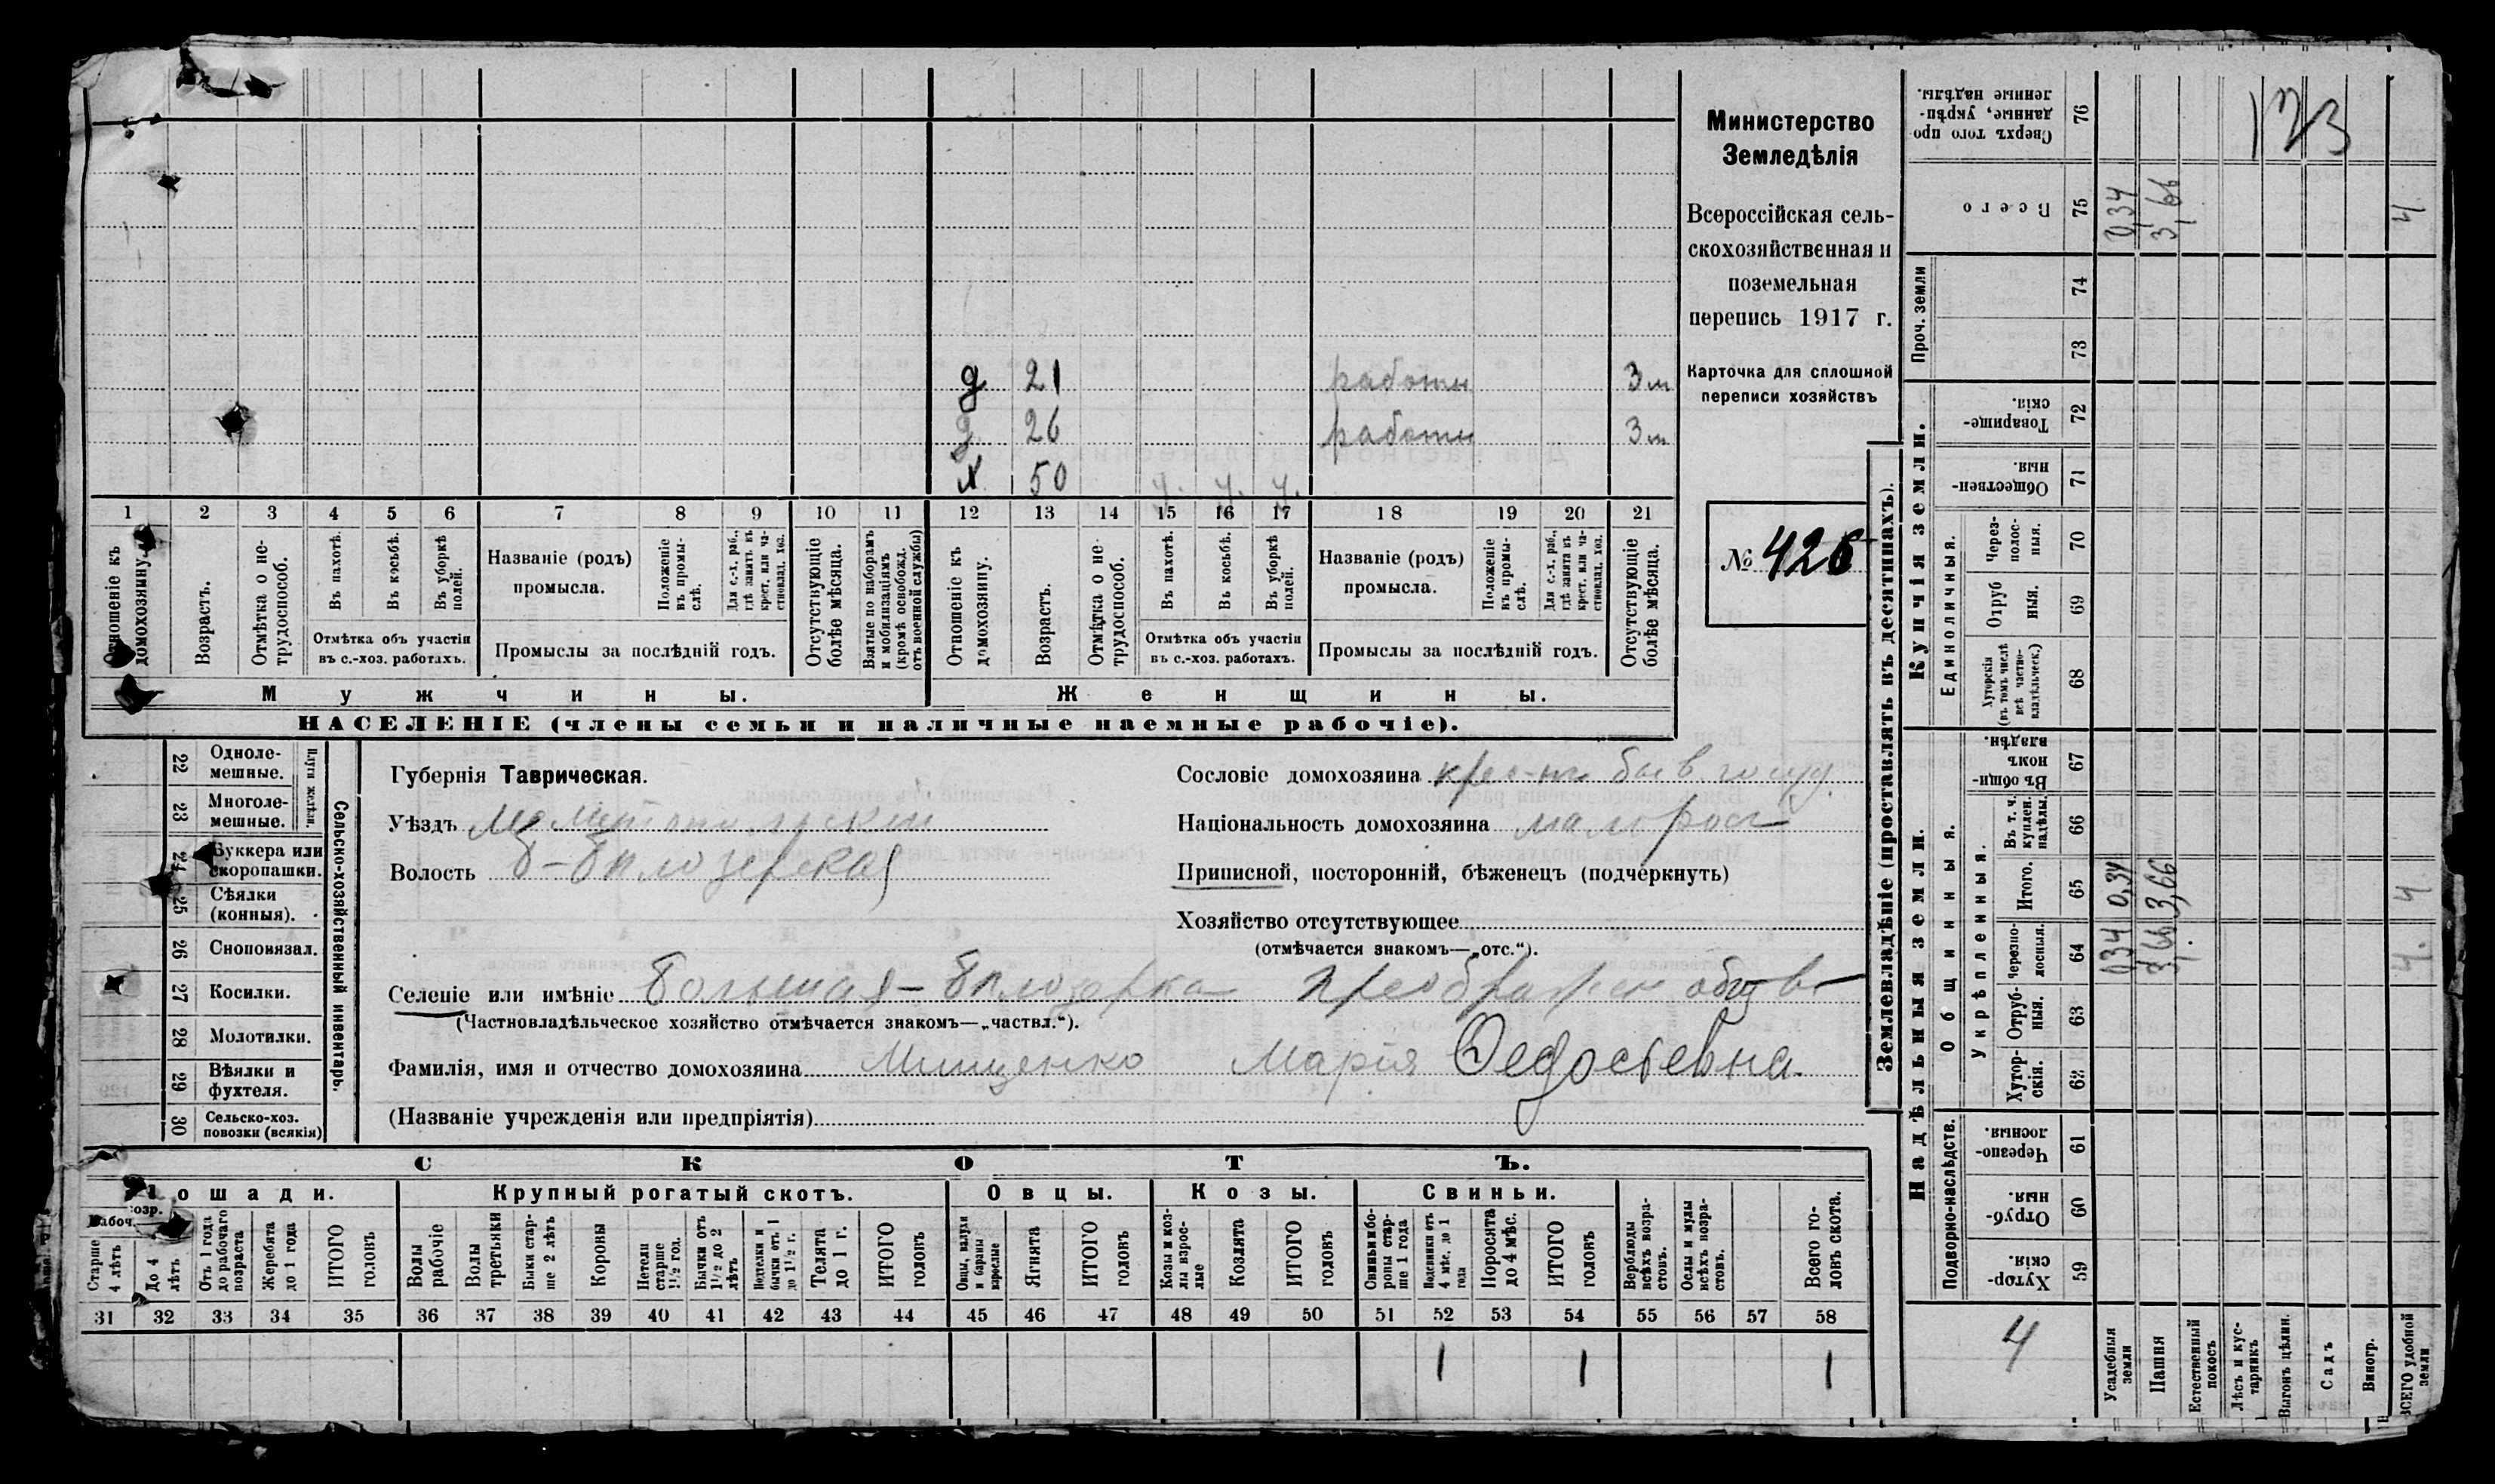 Министерство
Земледѣлія
Всероссійская сель-
скохозяйственная и
поземельная
перепись 1917 г.
Карточка для сплошной
переписи хозяйствъ
№ 426
123
д 21 работн 3 м
д 26 работн 3 м
х 50 ч. ч. ч.
1 2 3 4 5 6 7 8 9 10 11 12 13 14 15 16 17 18 19 20 21
Отношеніе къ домохозяину.
Возрастъ.
Отмѣтка о не-трудоспособ.
Въ пахотѣ.
Въ косьбѣ.
Въ уборкѣ полей.
Отмѣтка объ участіи
въ с.-хоз. работахъ.
Названіе (родъ)
промысла.
Положеніе въ промы-слѣ.
Для с.-х. раб., гдѣ занятъ въ крест. или ча-стновлад. хоз.
Промыслы за послѣдній годъ.
Отсутствующіе болѣе мѣсяца.
Взятые по наборамъ и мобилизаціямъ (кромѣ освобожд. отъ военной службы)
Отношеніе къ домохозяину.
Возрастъ.
Отмѣтка о не трудоспособ.
Въ пахотѣ.
Въ косьбѣ.
Въ уборкѣ полей.
Отмѣтка объ участіи
въ с.-хоз. работахъ.
Названіе (родъ)
промысла.
Положеніе въ промы-слѣ.
Для с.-х. раб., гдѣ занята въ крест. или ча-стновлад. хоз.
Промыслы за послѣдній годъ.
Отсутствующіе болѣе мѣсяца.
Мужчины.
Женщины.
НАСЕЛЕНІЕ (члены семьи и наличные наемные рабочіе).
22 Одноле-мешные.
23 Многоле-мешные.
Плуги желѣзн.
24 Буккера или скоропашки.
25 Сѣялки (конныя).
26 Сноповязал.
27 Косилки.
28 Молотилки.
29 Вѣялки и фухтеля.
30 Сельско-хоз. повозки (всякія)
Сельско-хозяйственный инвентарь.
Губернія Таврическая.
Уѣздъ Мелитопольскій
Волость Б-Бѣлозерская
Сословіе домохозяина крес-нъ быв госуд.
Національность домохозяина малорос
Приписной, посторонній, бѣженецъ (подчеркнуть)
Хозяйство отсутствующее
(отмѣчается знакомъ—„отс.“).
Селеніе или имѣніе Большая-Бѣлозерка Преображен общ-во
(Частновладѣльческое хозяйство отмѣчается знакомъ—„частвл.“).
Фамилія, имя и отчество домохозяина Мищенко Марія Ѳедосьевна.
(Названіе учрежденія или предпріятія)
СКОТЪ.
Лошади.
Крупный рогатый скотъ.
Овцы.
Козы.
Свиньи.
Рабоч. возр.
Старше 4 лѣтъ
До 4 лѣтъ
Отъ 1 года до рабочаго возраста
Жеребята до 1 года
ИТОГО головъ
Волы рабочіе
Волы третьяки
Быки стар-ше 2 лѣтъ
Коровы
Нетели старше 1½ год.
Бычки отъ 1½ до 2 лѣтъ
Нетелки и бычки отъ 1 до 1½ г.
Телята до 1 г.
ИТОГО головъ
Овцы, валухи и бараны взрослые
Ягнята
ИТОГО головъ
Козы и коз-лы взрос-лые
Козлята
ИТОГО головъ
Свиньи и бо-ровы стар-ше 1 года
Подсвинки отъ 4 мѣс. до 1 года
Поросята до 4 мѣс.
ИТОГО головъ
Верблюды всѣхъ возра-стовъ.
Ослы и мулы всѣхъ возра-стовъ.
Всего го-ловъ скота.
31 32 33 34 35 36 37 38 39 40 41 42 43 44 45 46 47 48 49 50 51 52 53 54 55 56 57 58
1 1 1
Землевладѣніе (проставлять въ десятинахъ).
Купчія земли.
Надѣльныя земли.
Сверхъ того про-данные, укрѣп-ленные надѣлы. 76
Всего 75 0,34 3,66 4
Проч. земли 74 73
Товарище-скія. 72
Обществен-ныя. 71
Единоличныя.
Через-полос-ныя. 70
Отруб ныя. 69
Хуторскія (въ томъ числѣ всѣ частно-владѣльческ.) 68
Въ общин-номъ владѣн. 67
Общинныя.
Укрѣпленныя.
Въ т. ч. куплен. надѣлы. 66
Итого. 65 0,34 3,66 4
Черезпо-лосныя. 64 034 3,66 4.
Отруб-ныя. 63
Хутор-скія. 62
Подворно-наслѣдств.
Черезпо-лосныя. 61
Отруб-ныя. 60
Хутор-скія. 59
4
Усадебныя земли
Пашня
Естественный покосъ
Лѣсъ и кус-тарникъ
Выгонъ цѣлин.
Садъ
Виногр.
ВСЕГО удобной земли